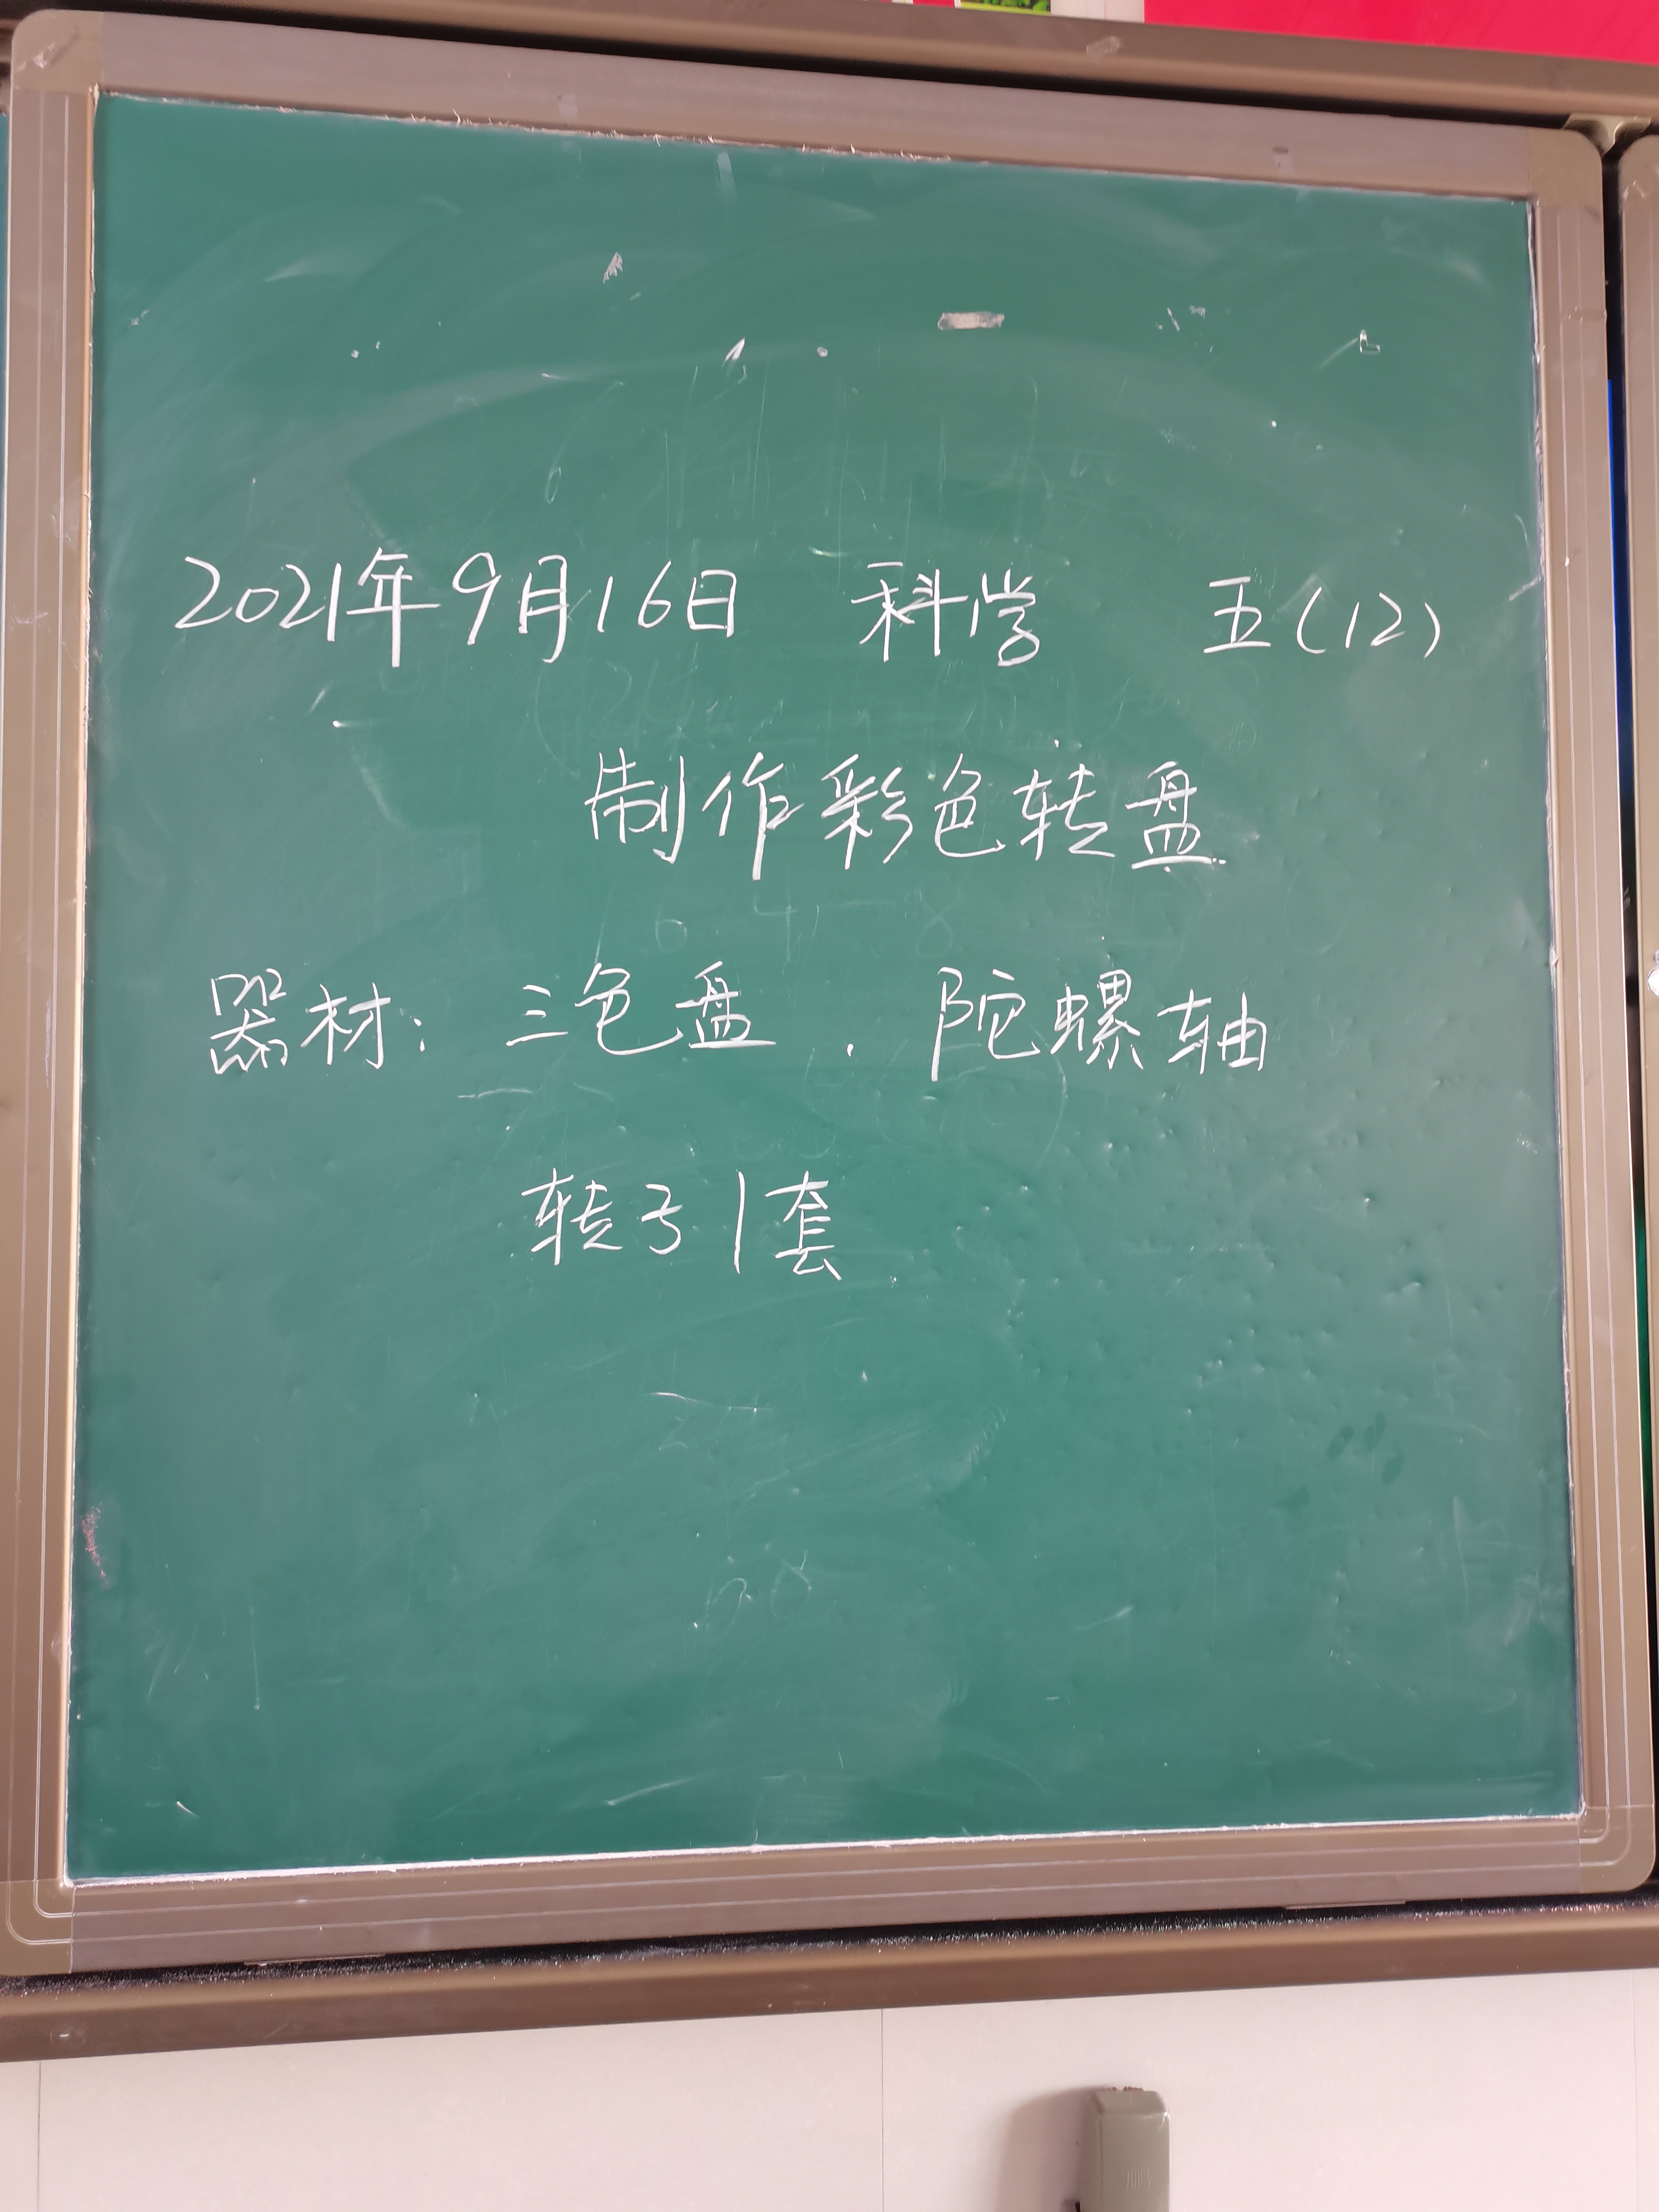 2021年9月16日 科学 五(12)
制作彩色转盘
器材: 三色盘. 陀螺轴
转子1套